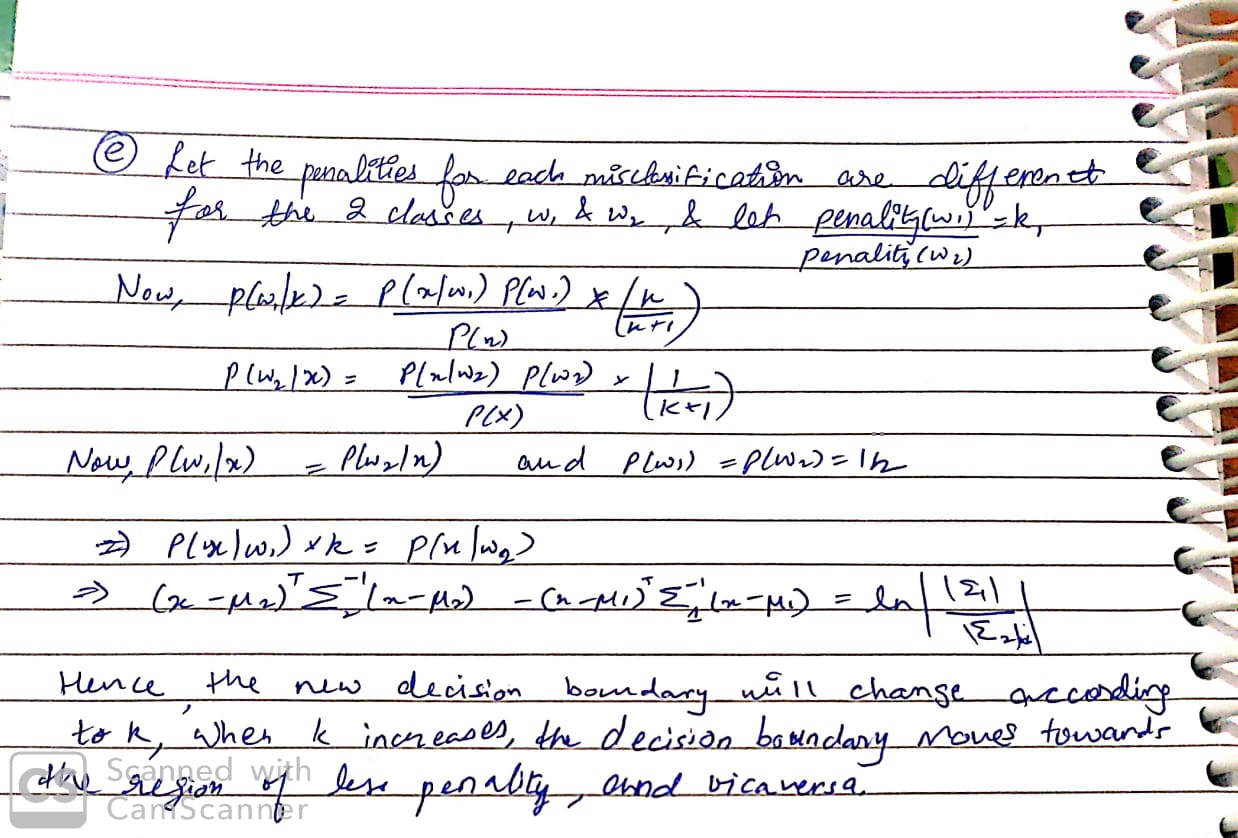 ⓔ Let the penalities for each misclassification are differenct
for the 2 classes, w₁ & w₂, & let penality(w₁) = k,
penality(w₂)
Now, p(w₁/x) = P(x/w₁) P(w₁) * (k/k+1)
P(x)
P(w₂|x) = P(x|w₂) P(w₂) x (1/k+1)
P(x)
Now, P(w₁|x) = P(w₂|x) and P(w₁) = P(w₂) = 1/2
⇒ P(x|w₁) x k = P(x|w₂)
⇒ (x-μ₂)ᵀ Σ₂⁻¹ (x-μ₂) - (x-μ₁)ᵀ Σ₁⁻¹ (x-μ₁) = ln | |Σ₁|
Hence the new decision boundary will change according
to k, when k increases, the decision boundary moves towards
the region of less penality, and vicaversa.
CS Scanned with
CamScanner